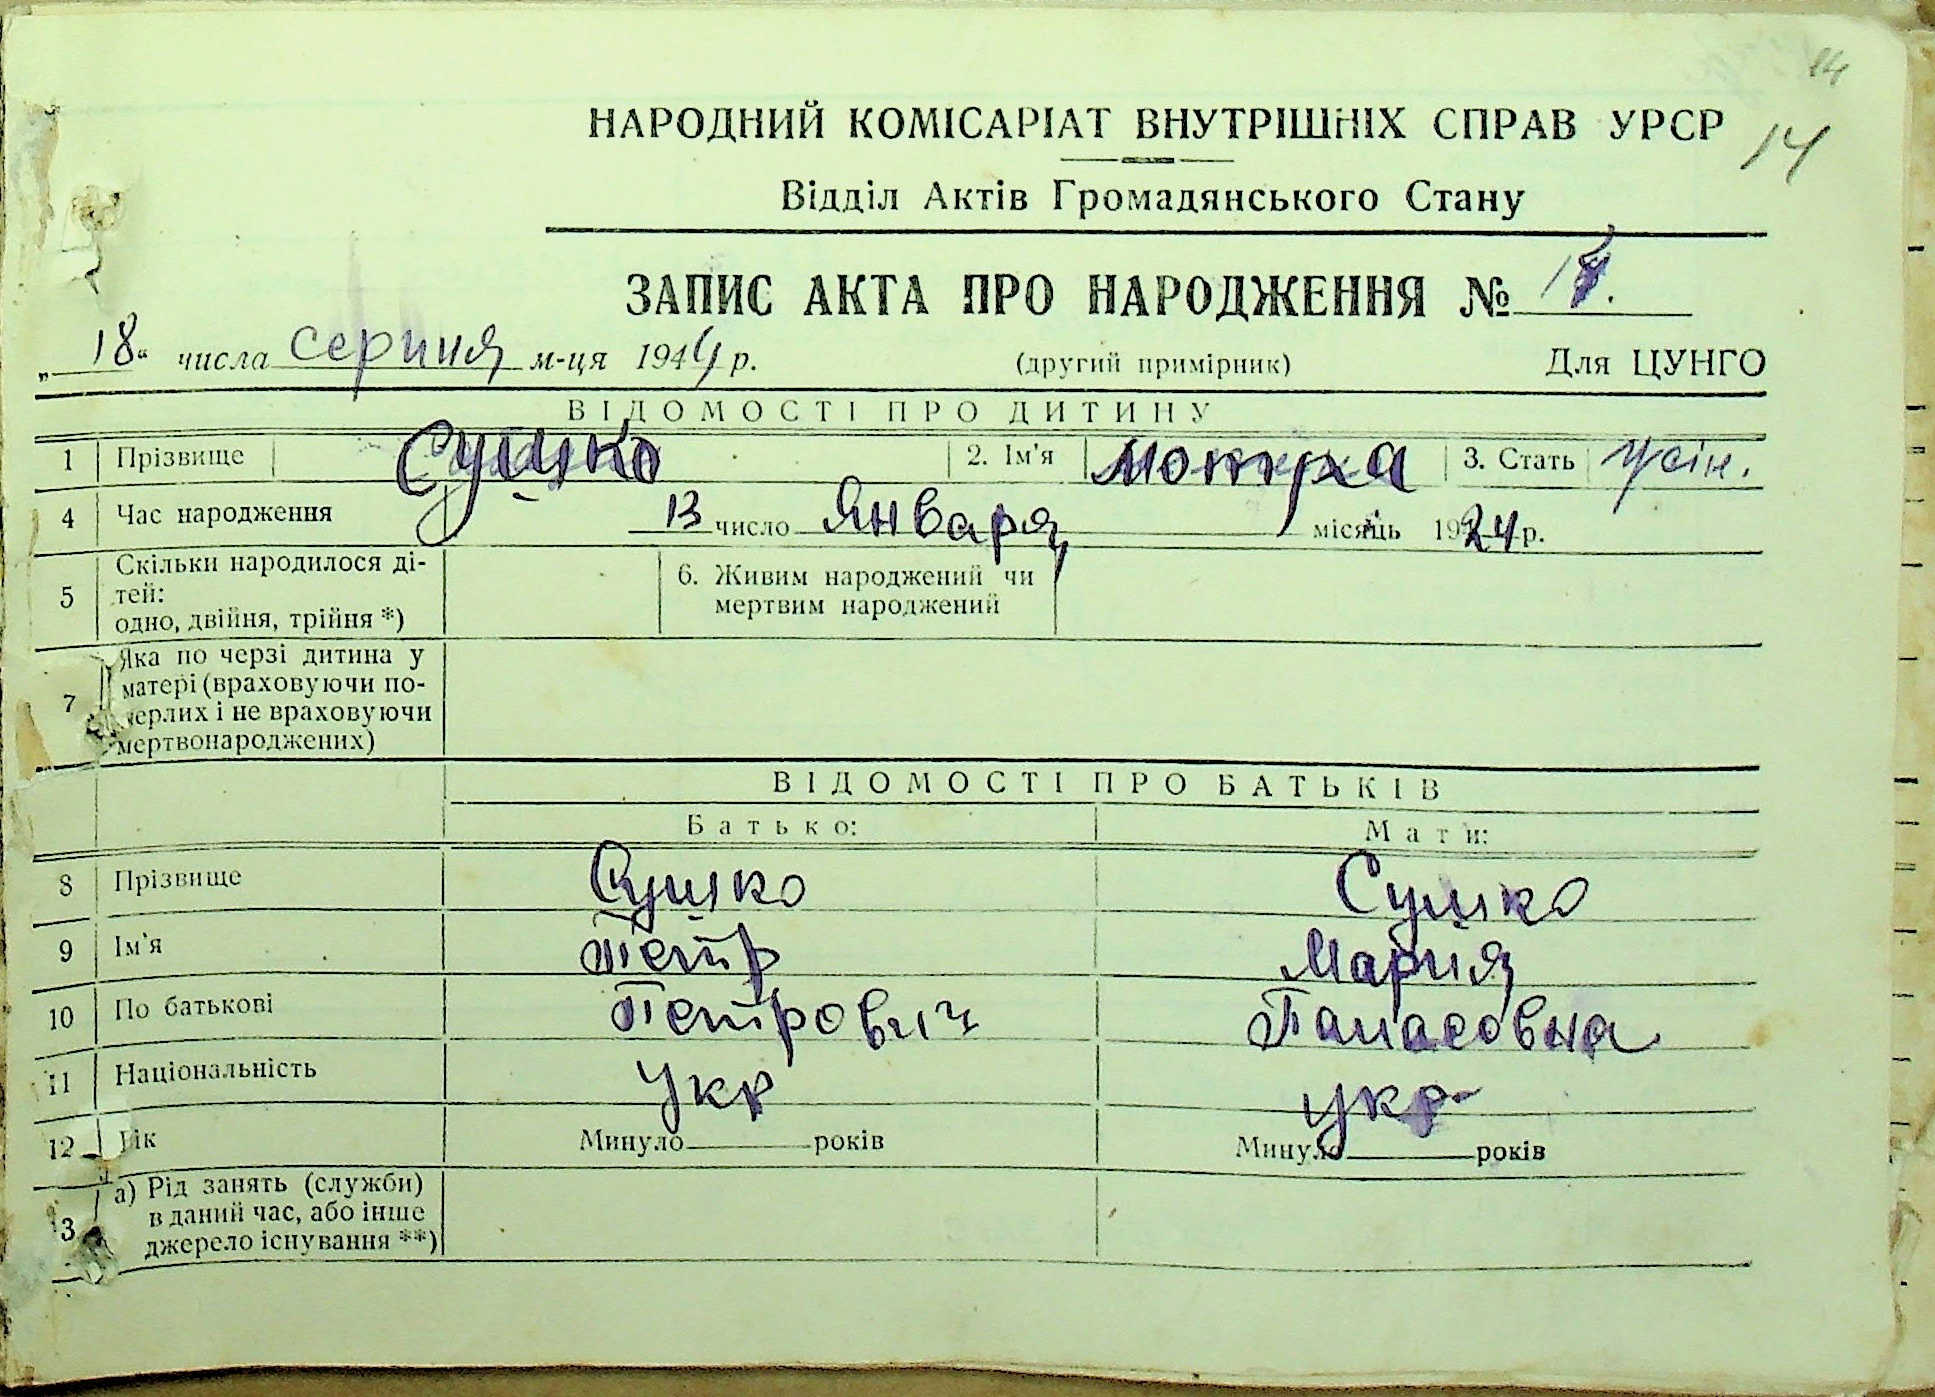 14
14
НАРОДНИЙ КОМІСАРІАТ ВНУТРІШНІХ СПРАВ УРСР
Відділ Актів Громадянського Стану
ЗАПИС АКТА ПРО НАРОДЖЕННЯ №
„18“ числа серпня м-ця 1944 р. (другий примірник) Для ЦУНГО
ВІДОМОСТІ ПРО ДИТИНУ
1 Прізвище Сушко 2. Ім'я Мотря 3. Стать жін.
4 Час народження 13 число Января місяць 1924 р.
5 Скільки народилося ді-
тей:
одно, двійня, трійня *)
6. Живим народжений чи
мертвим народжений
7 Яка по черзі дитина у
матері (враховуючи по-
мерлих і не враховуючи
мертвонароджених)
ВІДОМОСТІ ПРО БАТЬКІВ
Батько: Мати:
8 Прізвище Сушко Сушко
9 Ім'я Петр Мария
10 По батькові Петрович Панасовна
11 Національність Укр укр
12 Вік Минуло років Минуло років
13 а) Рід занять (служби)
в даний час, або інше
джерело існування **)